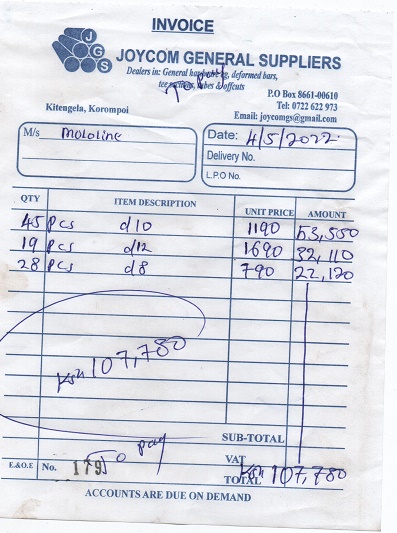 INVOICE
JGS
JOYCOM GENERAL SUPPLIERS
Dealers in: General hardware, deformed bars,
tee sections, tubes & offcuts
P.O Box 8661-00610
Tel: 0722 622 973
Kitengela, Korompoi
Email: joycomgs@gmail.com
M/s Mololine
Date: 4/5/2022
Delivery No.
L.P.O No.
QTY ITEM DESCRIPTION UNIT PRICE AMOUNT
45 pcs d10 1190 53,550
19 pcs d12 1690 32,110
28 pcs d8 790 22,120
Ksh 107,780
To pay
SUB-TOTAL
VAT
E.&O.E No. 179
TOTAL Ksh 107,780
ACCOUNTS ARE DUE ON DEMAND